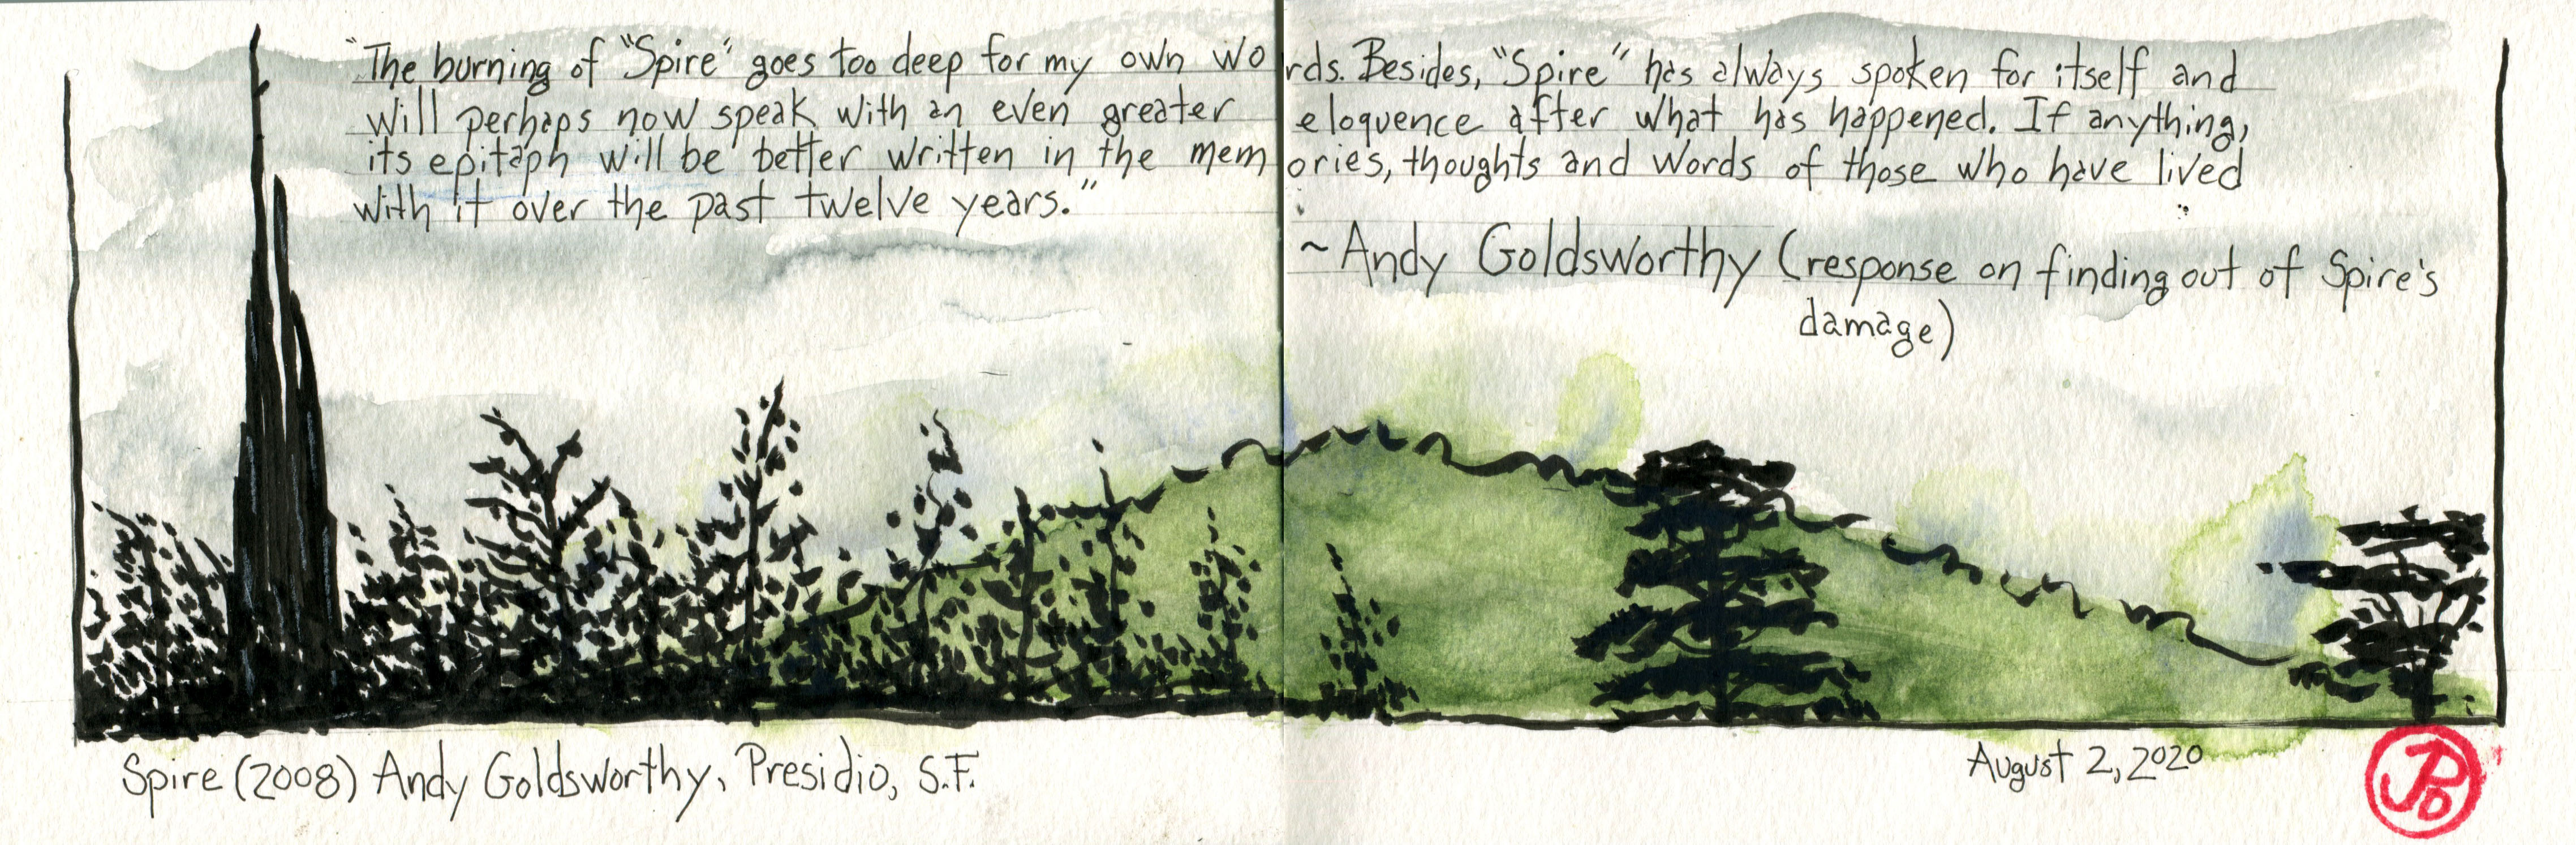 "The burning of "Spire" goes too deep for my own words. Besides, "Spire" has always spoken for itself and
will perhaps now speak with an even greater eloquence after what has happened. If anything,
its epitaph will be better written in the memories, thoughts and words of those who have lived
with it over the past twelve years."
~Andy Goldsworthy (response on finding out of Spire's
damage)
Spire (2008) Andy Goldsworthy, Presidio, S.F.
August 2, 2020